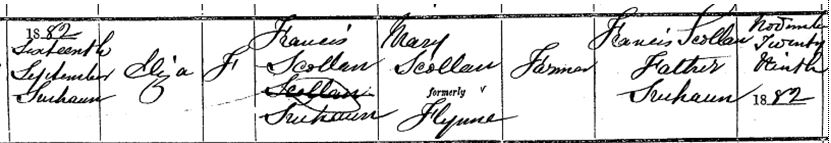 1882
Sixteenth
September
Sruhaun
Eliza
F
Francis
Scollan
Scollan
Sruhaun
Mary
Scollan
formerly
Flynne
Farmer
Francis Scollan
Father
Sruhaun
November
Twenty
Ninth
1882